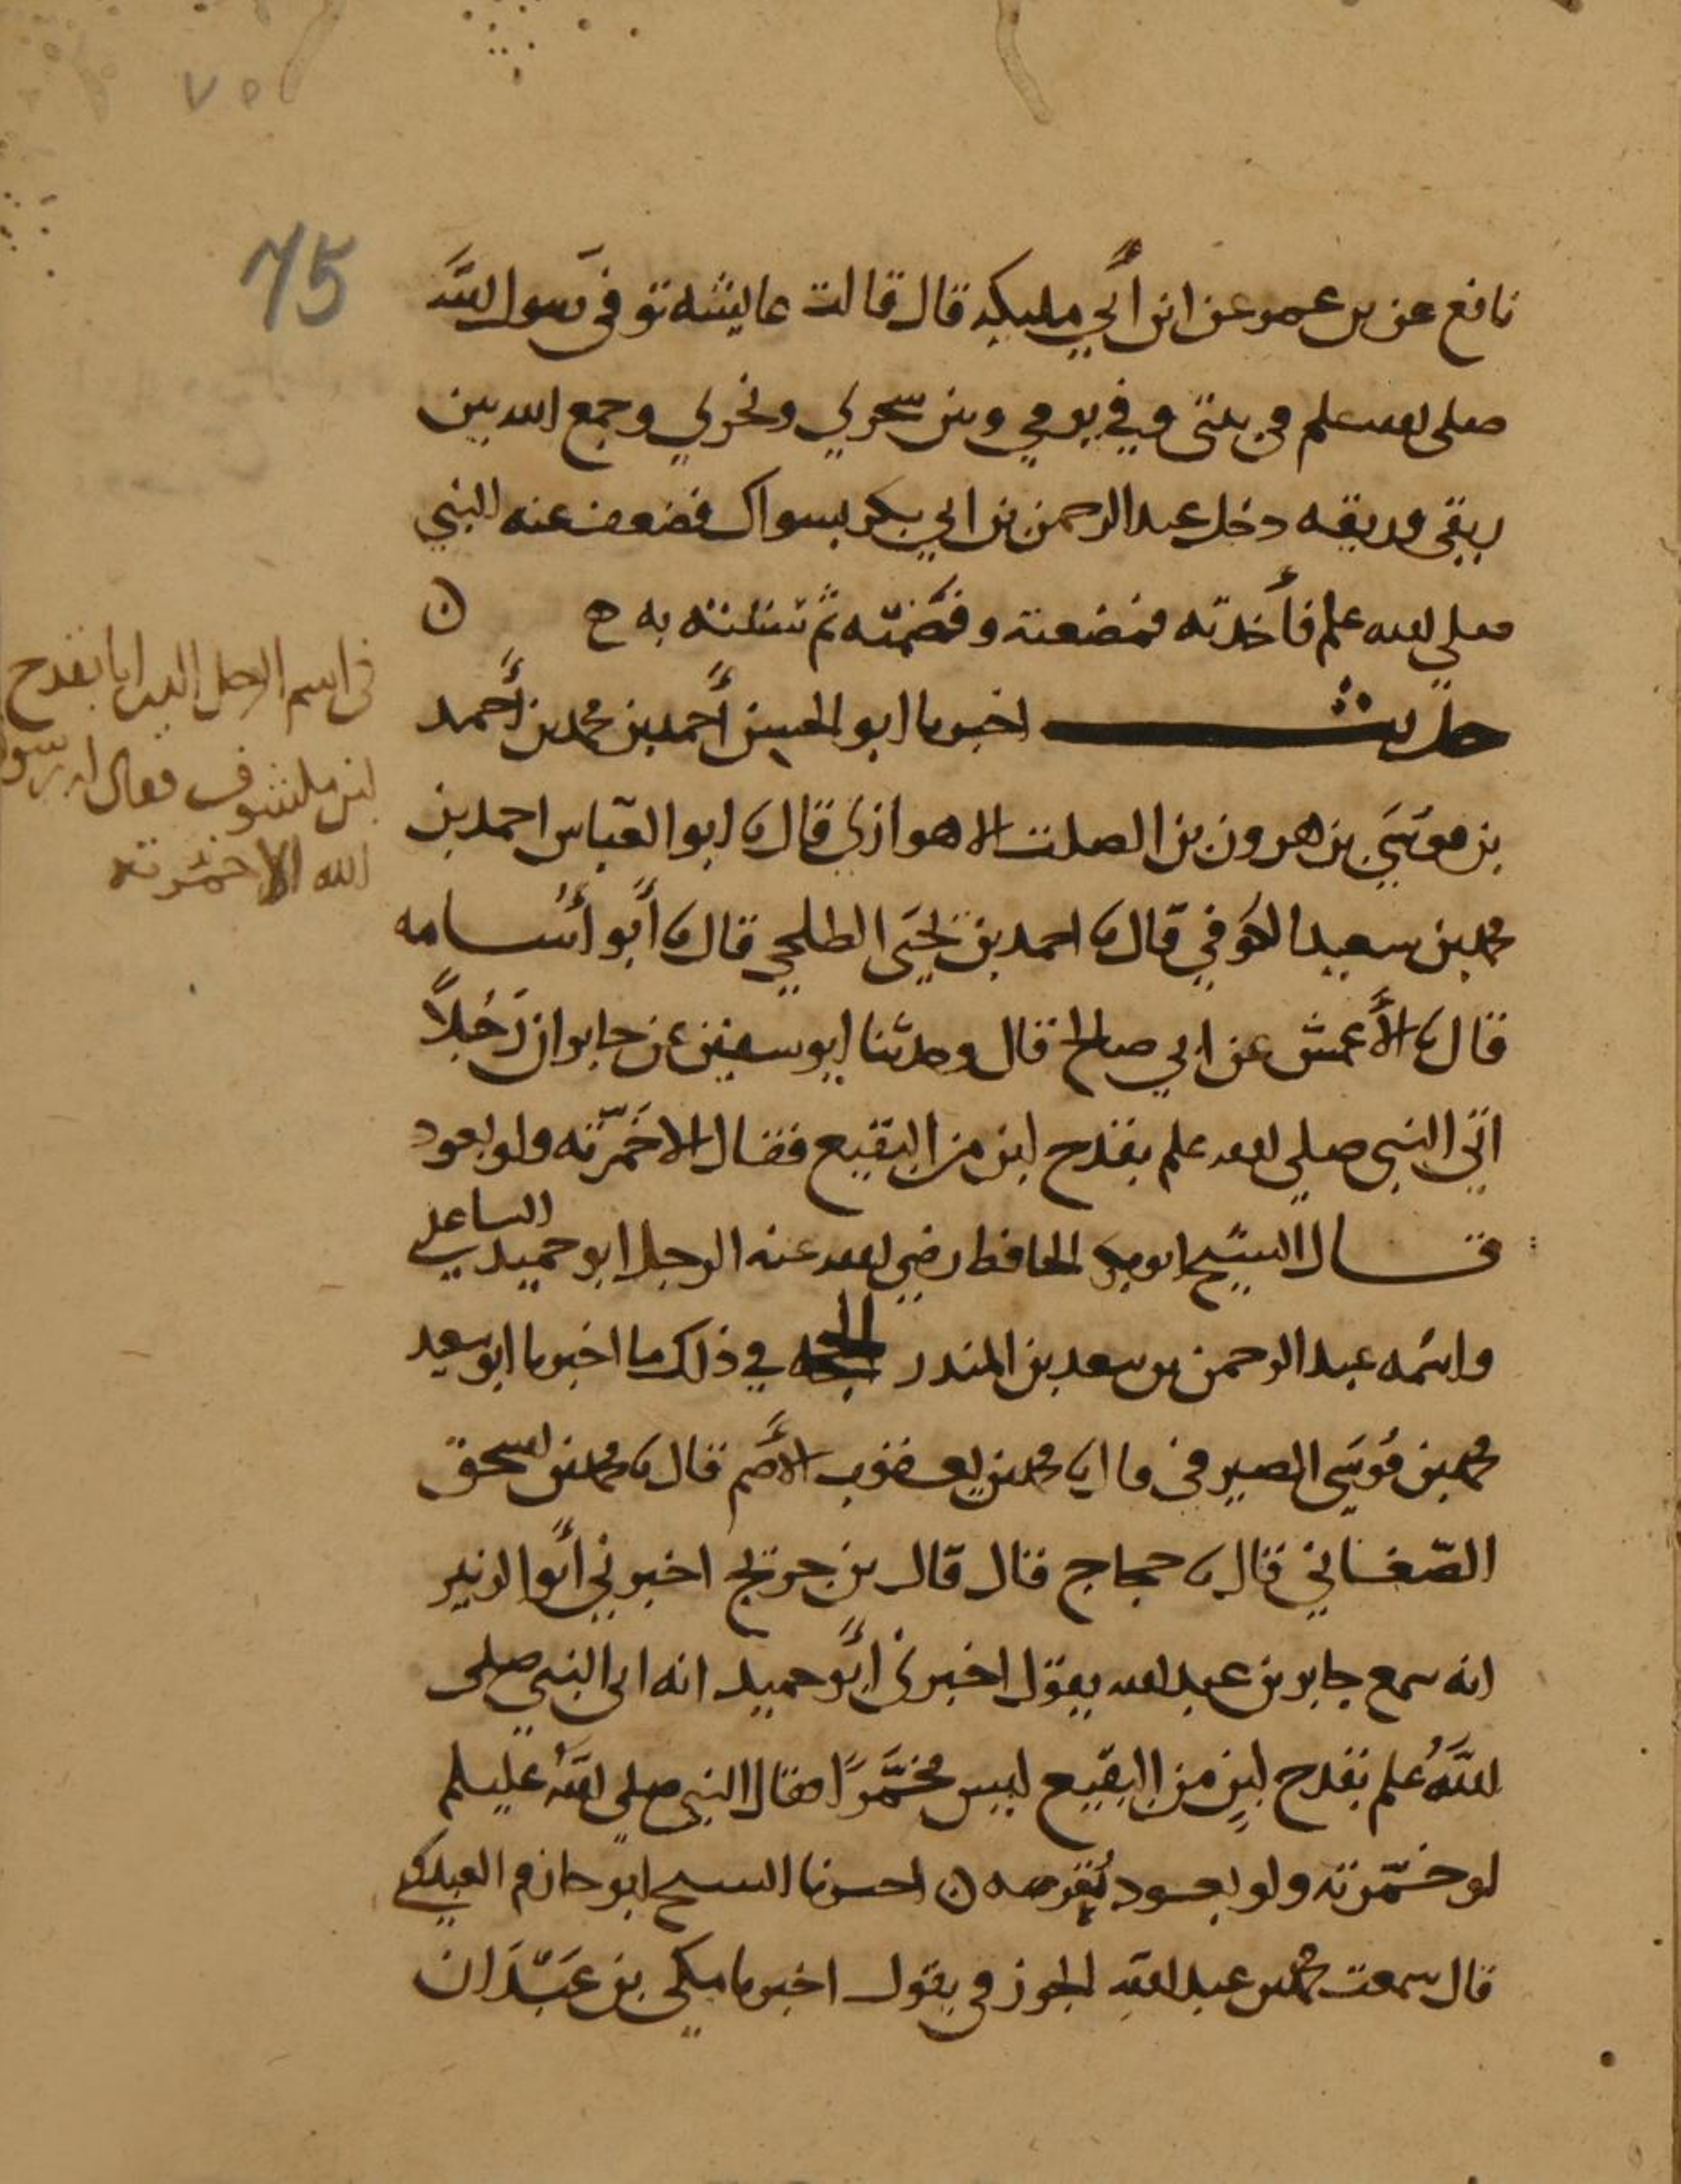 ٧٥
75
نافع عن بن عمر عن ابن أبي مليكه قال قالت عايشه توفى رسول الله
صلى الله علم في بيتي وفي يومي وبين سحري ونحري وجمع الله بين
ريقي وريقه دخل عبد الرحمن بن ابي بكر بسواك فضعف عنه النبي
صلي الله علم فأخذته فمضغته وقضمته ثم سننته به ح ن
حديث اخبرنا ابو الحسين أحمد بن محمد بن أحمد
بن موسَى بن هرون بن الصلت الاهوازي قال ثا ابو العباس احمد بن
محمد بن سعيد الكوفي قال ثا احمد بن يحيَى الطلحي قال ثا أبو أسامه
قال ثا الأعمش عن ابي صالح قال وحدثنا ابو سفين عن جابر ان رَجُلاً
اتي النبي صلي الله علم بقدح لبن من البقيع فقال الا خَمّرته ولو بعود
قال الشيخ ابو بكر الحافظ رضي الله عنه الرجل ابو حميد الساعدي
واسمه عبد الرحمن بن سعد بن المنذر الحجه في ذلك ما اخبرنا ابو سعيد
محمد بن مُوسَى الصيرفي ثا محمد بن يعقوب الأصم قال ثا محمد بن اسحق
الصّغاني قال ثا حجاج قال قال بن جريج اخبرني أبو الزبير
انه سمع جابر بن عبد الله يقول اخبرني أبو حميد انه اتى النبي صلى
اللهُ علم بقدح لبنٍ من البقيع ليس مخمَّرًا فقال النبي صلي اللهُ عليسلم
لو خمّرته ولو بعود تُعرضه ن اخبرنا الشيخ ابو حازم العبدوي
قال سمعت محمد بن عبد الله الجوزقي يقول اخبرنا مكي بن عَبْدَان
في اسم الرجل الذي اتا بقدح
لبن مكشوف فقال له رسول
الله الا خمرته